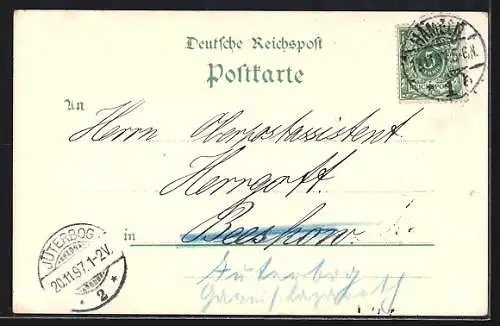 Deutsche Reichspost
Postkarte
An
Herrn Oberpostassistent
Herrgott
in Beeskow
Jüterbog
Garnislazareth
JÜTERBOG
20.11.97.1-2V.
* 2 *
5-6N.